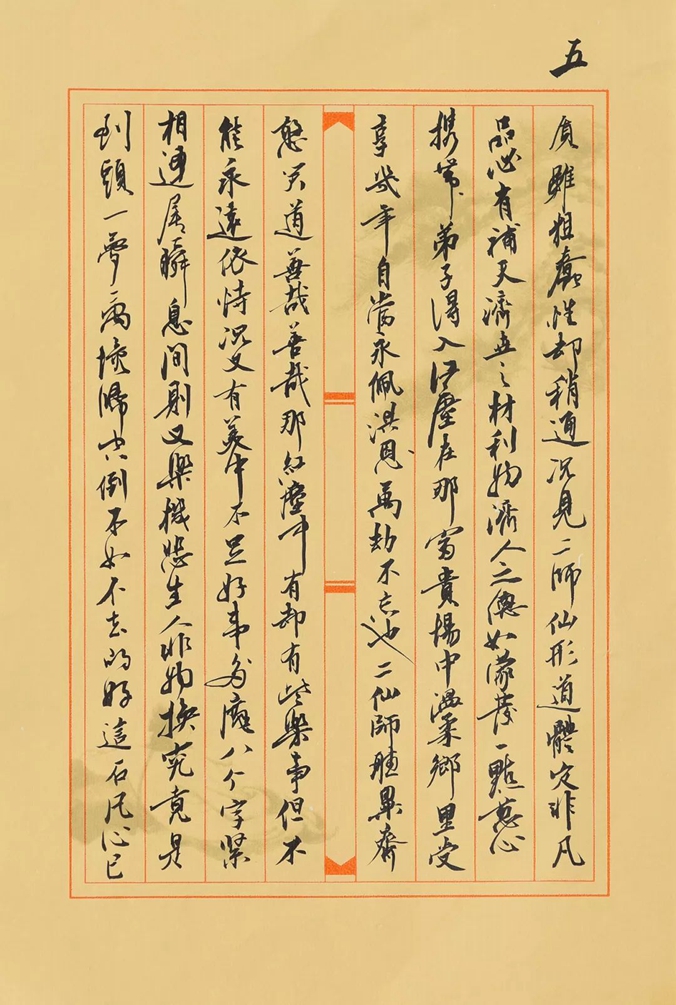 五
质雖粗蠢性却稍通况見二師仙形道體定非凡
品必有補天濟世之材利物濟人之德如蒙發一點慈心
携带弟子得入红塵在那富貴場中温柔鄉里受
享幾年自當永佩洪恩萬劫不忘也二仙師聽畢齊
憨笑道善哉善哉那紅塵中有却有些樂事但不
能永遠依恃况又有美中不足好事多魔八个字緊
相連屬瞬息間則又樂極悲生人非物换究竟是
到頭一夢萬境歸空倒不如不去的好這石凡心已